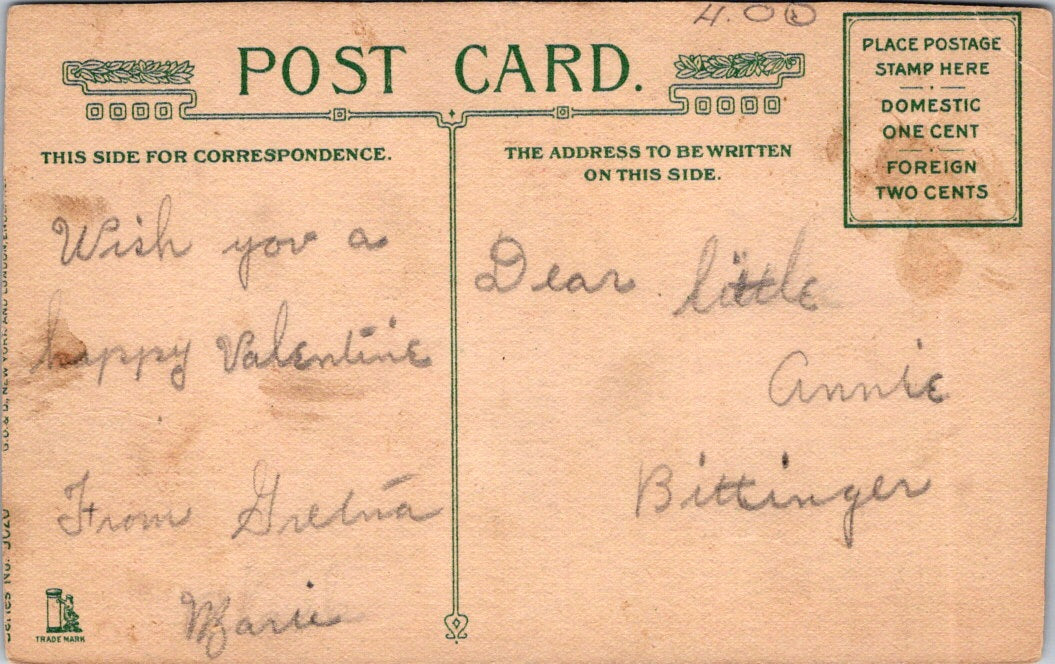 4.00
POST CARD.
PLACE POSTAGE
STAMP HERE
DOMESTIC
ONE CENT
FOREIGN
TWO CENTS
THIS SIDE FOR CORRESPONDENCE.
THE ADDRESS TO BE WRITTEN
ON THIS SIDE.
Wish you a
happy Valentine
From Gretna
Marie
Dear little
Annie
Bittinger
TRADE MARK
Series No.
NEW YORK AND